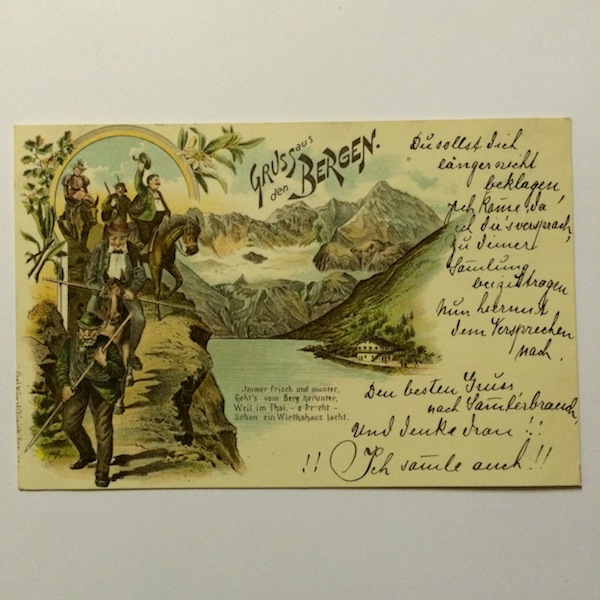 GRUSS aus
den BERGEN.
Du sollst dich
länger nicht
beklagen,
ich kome, da
ich dir's versprach,
zu deiner
Samlung
beizutragen
Nun hiermit
dem Versprechen
nach.
Immer frisch und munter,
Geht's vom Berg herunter,
Weil im Thal, – o Pracht –
Schon ein Wirthshaus lacht.
Den besten Gruss
nach Samlerbrauch,
und denke dran!!!
!! Ich samle auch!!